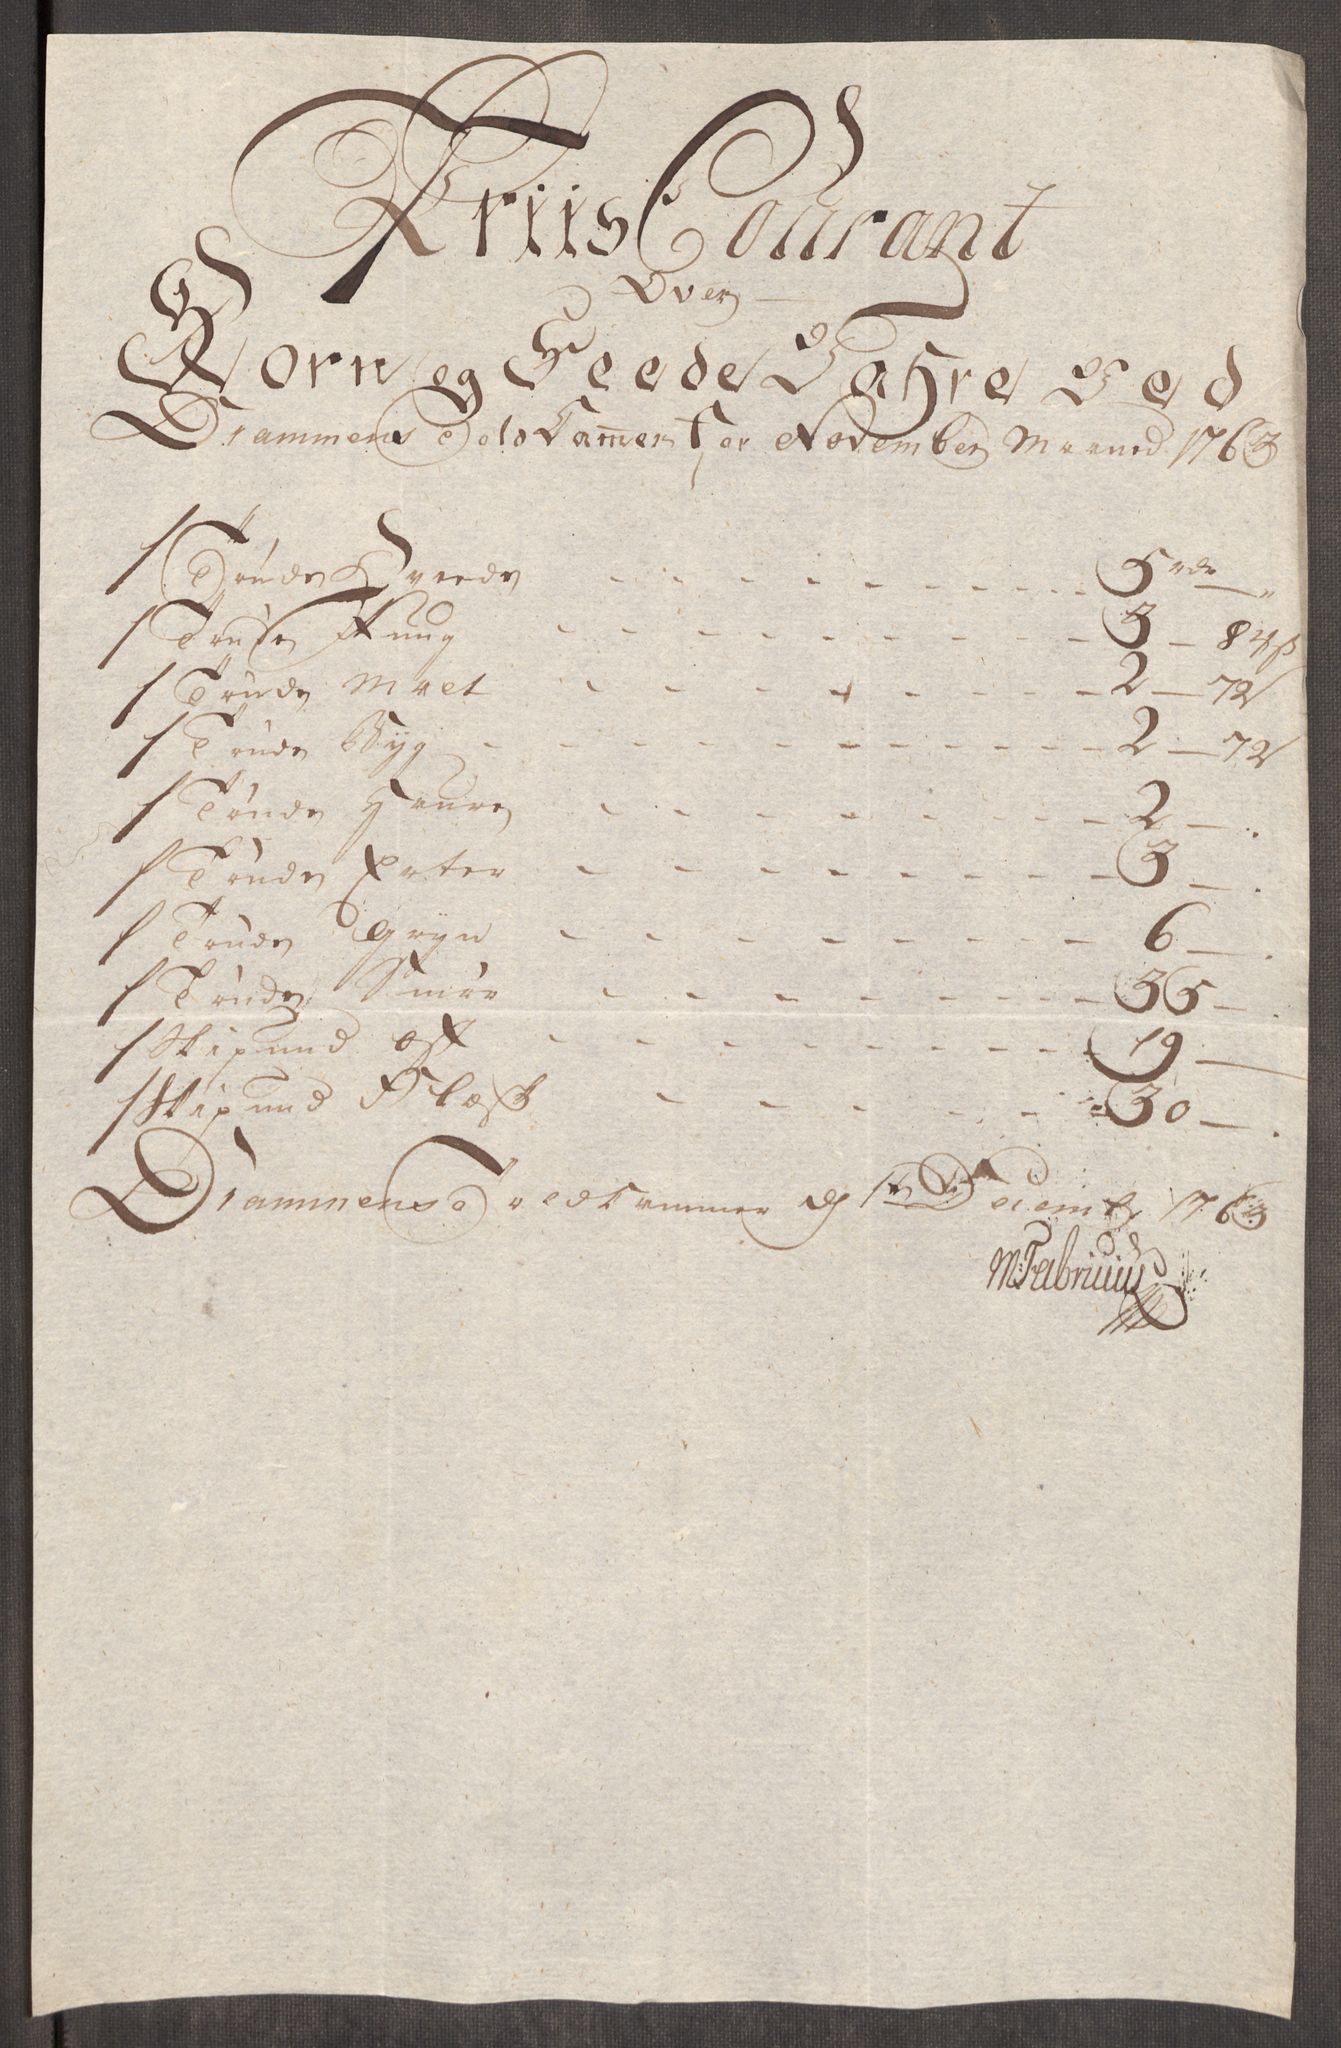 Priis Courant
Over
Korn og Feede Vahre Ved
Drammens Told Camer for November Maaned 1763
1 Tønde Hveede - - - 5 rdr "
1 Tønde Rug - - - 3 - 84 ß
1 Tønde Malt - - - 2 - 72
1 Tønde Byg - - - 2 - 72
1 Tønde Haure - - - 2 - .
1 Tønde Erter - - - 3 - .
1 Tønde Gryn - - - 6 - .
1 Tønde Smør - - - 35 - .
1 Skipund Ost - - - 19 -
1 Skipund Flæsk - - - 30 - .
Drammens Toldkammer d 1te Decemb 1763
M: Fabritius